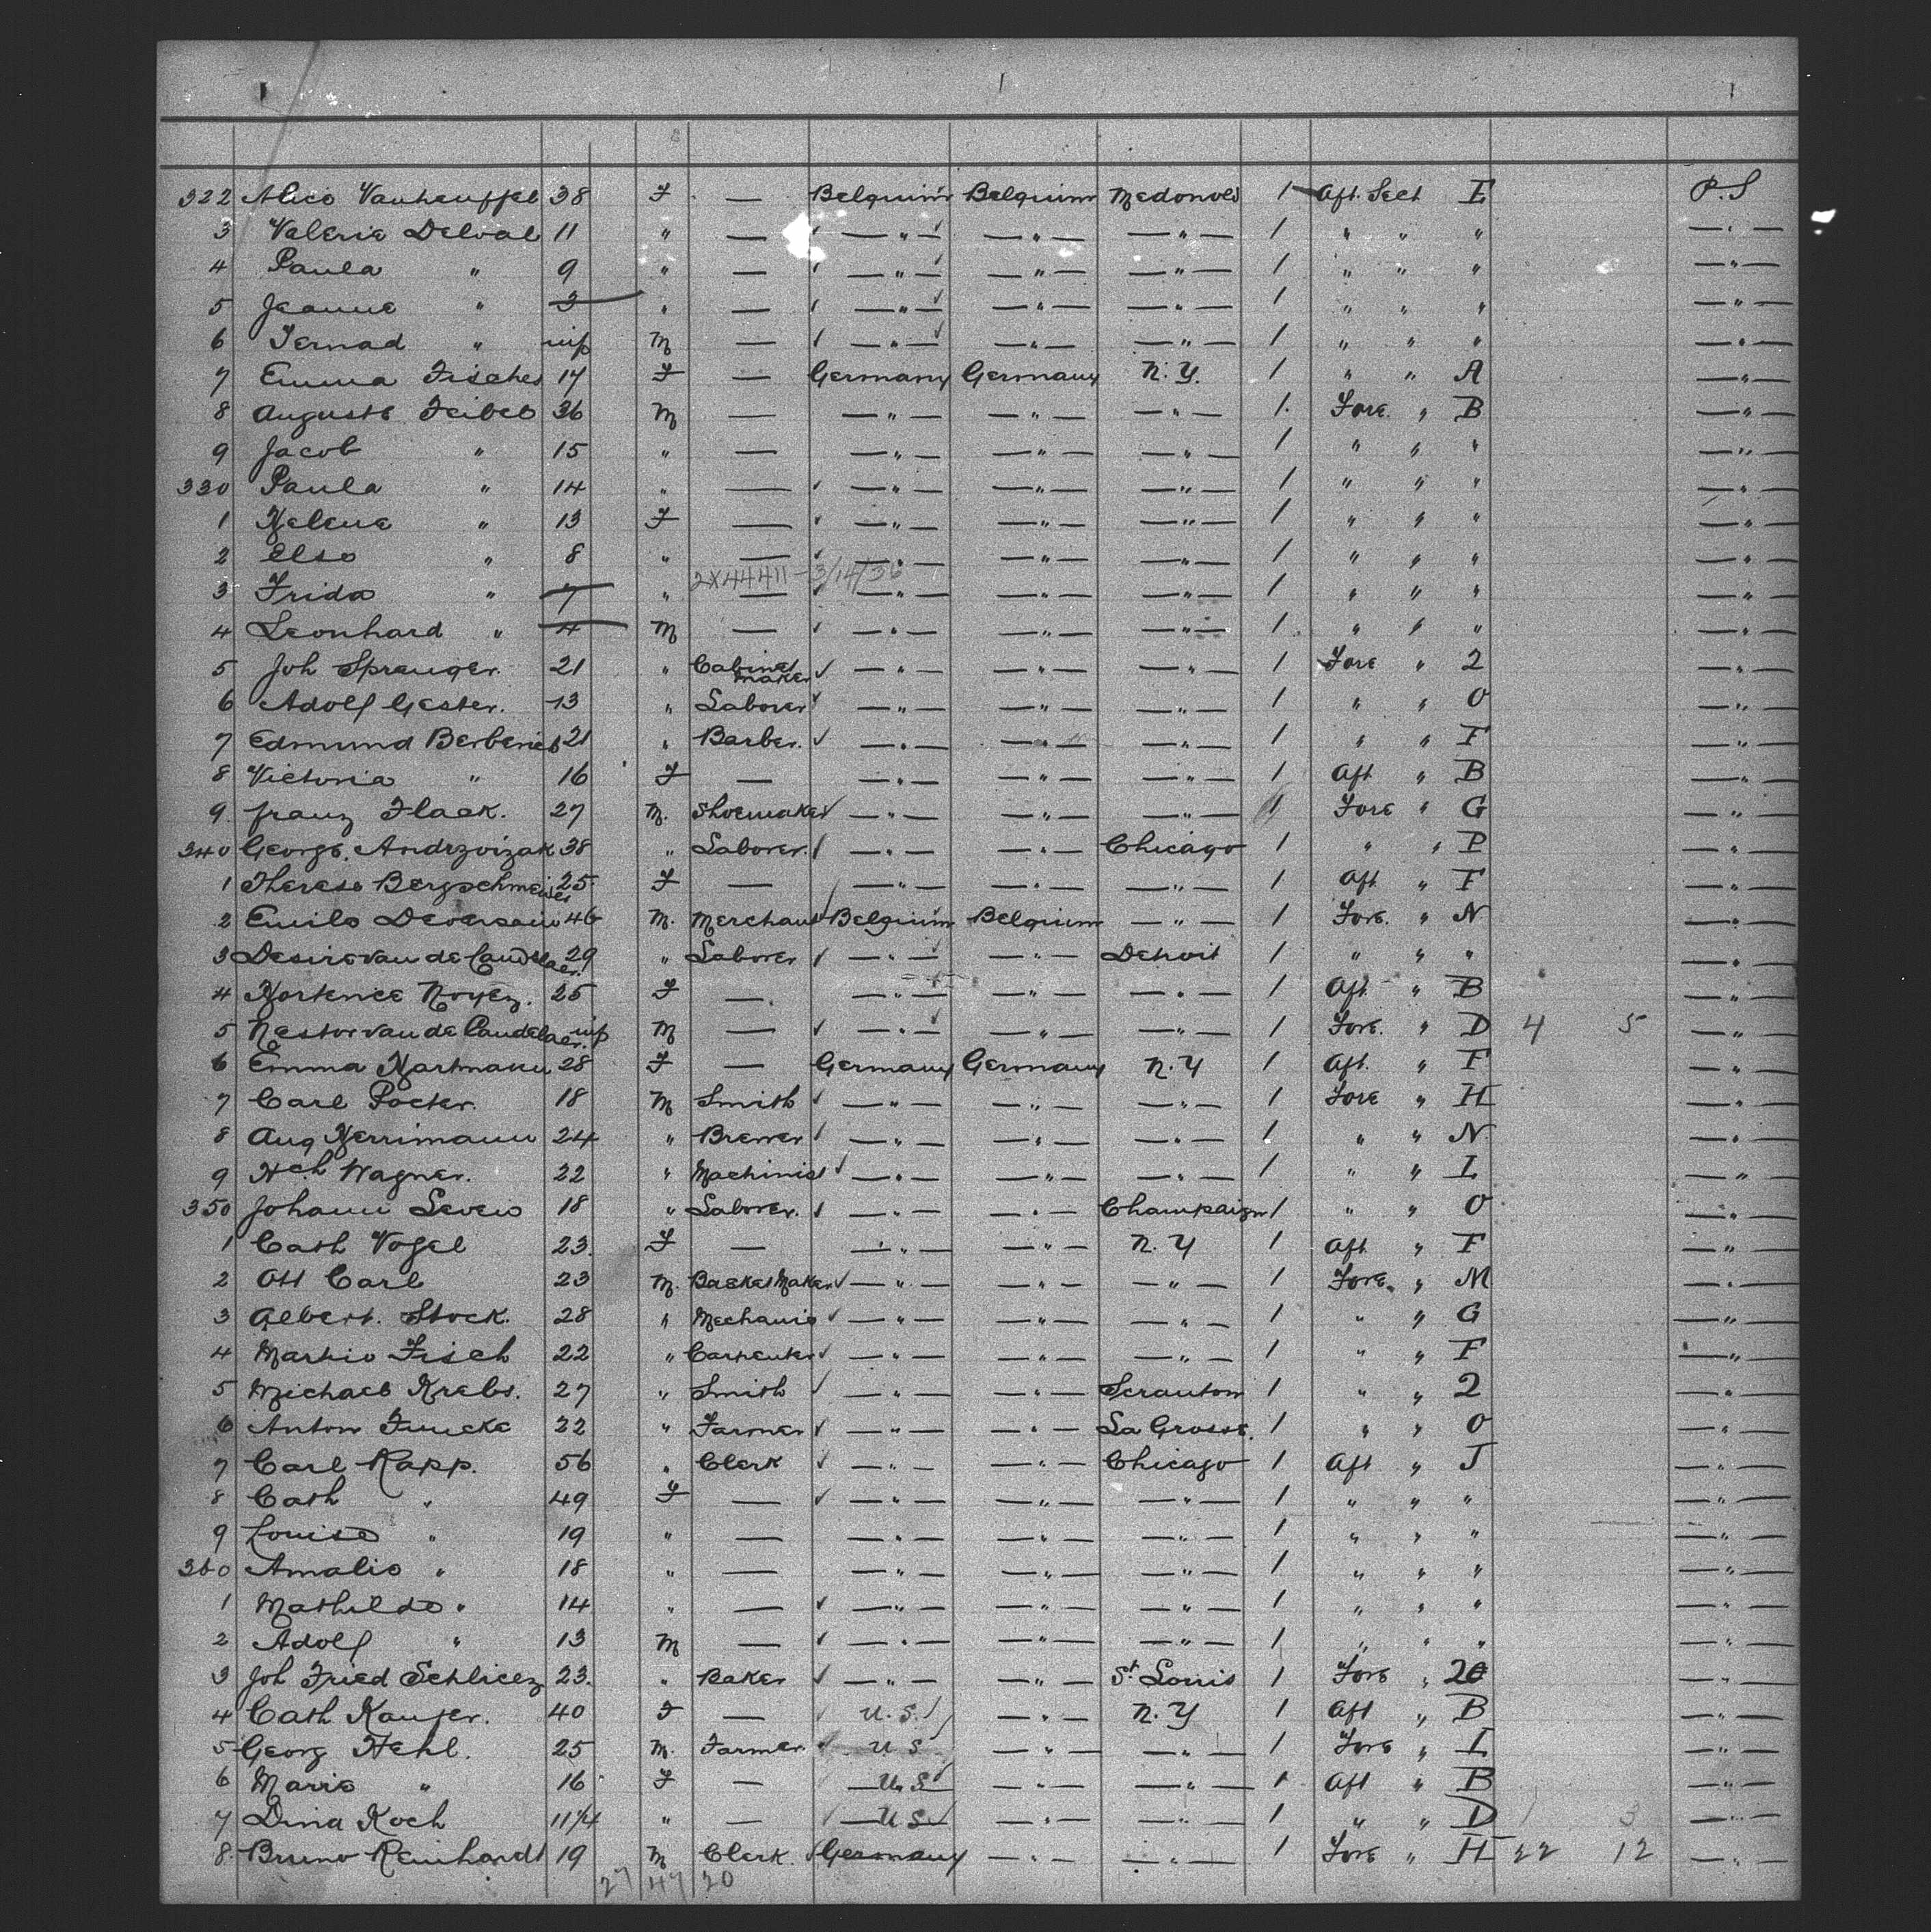 322 Alice Vanheuffel 38 F — Belgium Belgium Medonold 1 Aft. Sect E P.S
3 Valerie Delval 11 " — — " — — " — — " — 1 " " " — " —
4 Paula " 9 " — — " — — " — — " — 1 " " " — " —
5 Jeanne " 3 " — — " — — " — — " — 1 " " " — " —
6 Fernad " inf M — — " — — " — — " — 1 " " " — " —
7 Emma Fischer 17 F — Germany Germany N.Y. 1 " " A — " —
8 Auguste Feibel 36 M — — " — — " — — " — 1 Fore. " B — " —
9 Jacob " 15 " — — " — — " — — " — 1 " " " — " —
330 Paula " 14 " — — " — — " — — " — 1 " " " — " —
1 Helene " 13 F — — " — — " — — " — 1 " " " — " —
2 Else " 8 " — — " — — " — — " — 1 " " " — " —
2X44411 - 3/14/36
3 Frida " 7 " — — " — — " — — " — 1 " " " — " —
4 Leonhard " 4 M — — " — — " — — " — 1 " " " — " —
5 Joh Sprenger. 21 " Cabinet maker — " — — " — — " — 1 Fore " 2 — " —
6 Adolf Gester. 13 " Laborer — " — — " — — " — 1 " " O — " —
7 Edmund Berberich 21 " Barber. — " — — " — — " — 1 " " F — " —
8 Victoria " 16 F — — " — — " — — " — 1 Aft " B — " —
9. Franz Flack. 27 M. Shoemaker — " — — " — — " — 1 Fore " G — " —
340 George Andrzvizak 38 " Laborer. — " — — " — Chicago 1 " " P — " —
1 Therese Bergschmeider 25 F — — " — — " — — " — 1 Aft " F — " —
2 Emile 46 M. Merchant Belgium Belgium — " — 1 Fore. " N — " —
3 Desire van de Caudelaer. 29 " Laborer — " — — " — Detroit 1 " " " — " —
4 Hortence Noyez. 25 F — — " — — " — — " — 1 Aft " B — " —
5 Nestor van de Caudelaer. inf M — — " — — " — — " — 1 Fore. " D 4 5 — " —
6 Emma Hartmann 28 F — Germany Germany N.Y 1 Aft. " F — " —
7 Carl Pocker. 18 M Smith — " — — " — — " — 1 Fore " H — " —
8 Aug Herrimann 24 " Brewer — " — — " — — " — 1 " " N. — " —
9 Hch Wagner. 22 " Machinist — " — — " — — " — 1 " " L — " —
350 Johann 18 " Laborer. — " — — " — Champaign 1 " " O — " —
1 Cath Vogel 23. F — — " — — " — N.Y 1 Aft " F — " —
2 Ott Carl 23 M. Basket Maker — " — — " — — " — 1 Fore. " M — " —
3 Albert. Stock. 28 " Mechanic — " — — " — — " — 1 " " G — " —
4 Fisch 22 " Carpenter — " — — " — — " — 1 " " F — " —
5 Michael Krebs. 27 " Smith — " — — " — Scranton 1 " " 2 — " —
6 Anton Funcke 22 " Farmer — " — — " — La Grosse. 1 " " O — " —
7 Carl Rapp. 56 " Clerk — " — — " — Chicago 1 Aft " J — " —
8 Cath " 49 F — — " — — " — — " — 1 " " " — " —
9 Louise " 19 " — — " — — " — — " — 1 " " " — " —
360 Amalie " 18 " — — " — — " — — " — 1 " " " — " —
1 Mathilde " 14 " — — " — — " — — " — 1 " " " — " —
2 Adolf " 13 M — — " — — " — — " — 1 " " " — " —
3 Joh Fried Schlicez 23. " Baker — " — — " — St Louis 1 Fore " 2 — " —
4 Cath Kaufer. 40 F — U.S. — " — N.Y 1 Aft " B — " —
5 Georg Hehl. 25 M. Farmer U S — " — — " — 1 Fore " I — " —
6 Marie " 16 F — U.S — " — — " — 1 Aft " B — " —
7 Dina Koch 11 1/4 " — U S — " — — " — 1 " " D 1 3 — " —
8. Bruno Reinhardt 19 M Clerk. Germany — " — — " — 1 Fore " H 22 12 — " —
27 47 20